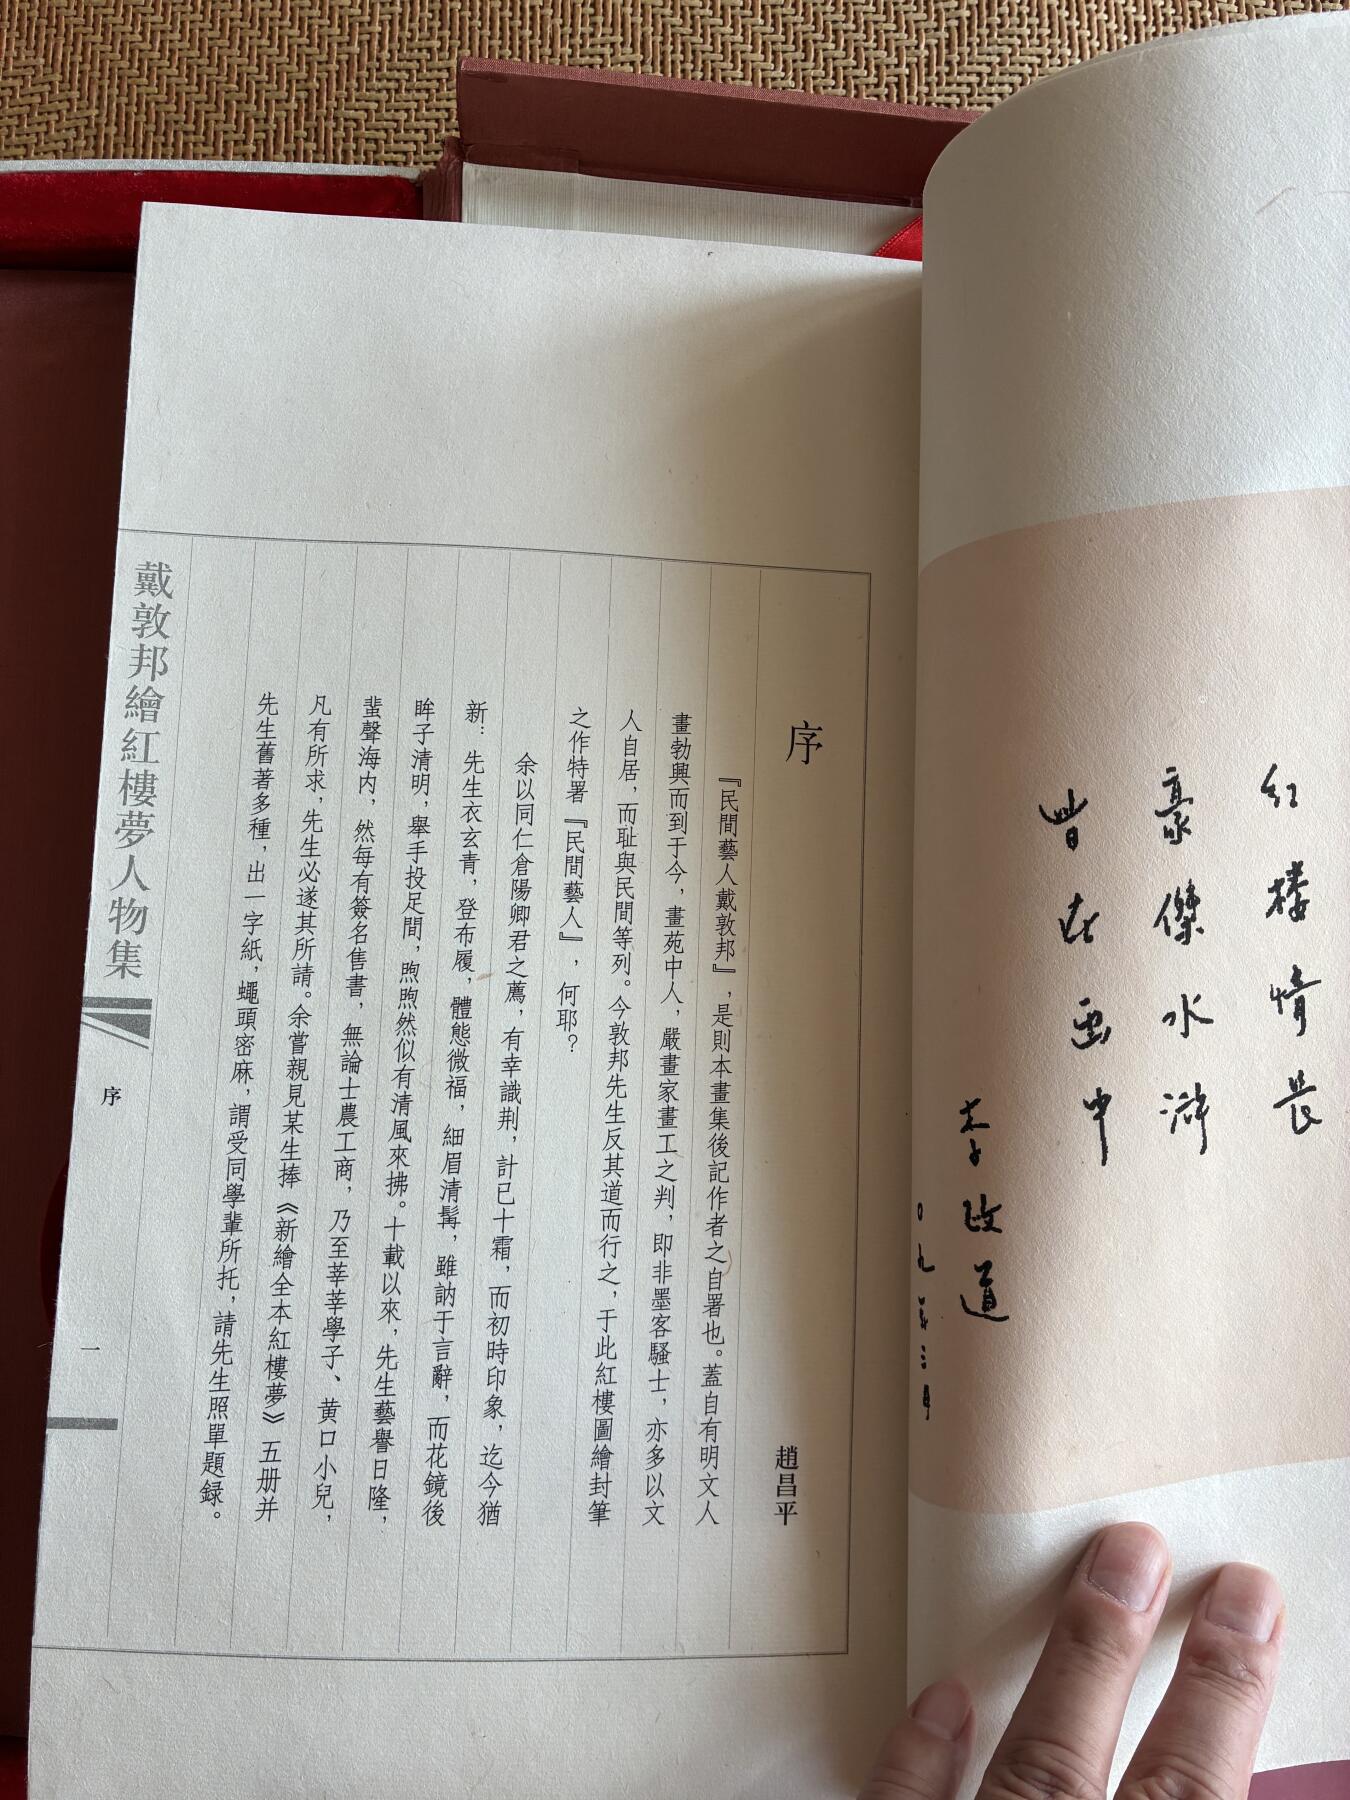 红楼情长
豪傑水浒
皆在画中
李政道
〇九年三月
序
趙昌平
『民間藝人戴敦邦』，是則本畫集後記作者之自署也。蓋自有明文人
畫勃興而到于今，畫苑中人，嚴畫家畫工之判，即非墨客騷士，亦多以文
人自居，而耻與民間等列。今敦邦先生反其道而行之，于此紅樓圖繪封筆
之作特署『民間藝人』，何耶？
余以同仁倉陽卿君之薦，有幸識荆，計已十霜，而初時印象，迄今猶
新：先生衣玄青，登布履，體態微福，細眉清髯，雖訥于言辭，而花鏡後
眸子清明，舉手投足間，煦煦然似有清風來拂。十載以來，先生藝譽日隆，
蜚聲海内，然每有簽名售書，無論士農工商，乃至莘莘學子、黄口小兒，
凡有所求，先生必遂其所請。余嘗親見某生捧《新繪全本紅樓夢》五册并
先生舊著多種，出一字紙，蠅頭密麻，謂受同學輩所托，請先生照單題録。
戴敦邦繪紅樓夢人物集
序
一